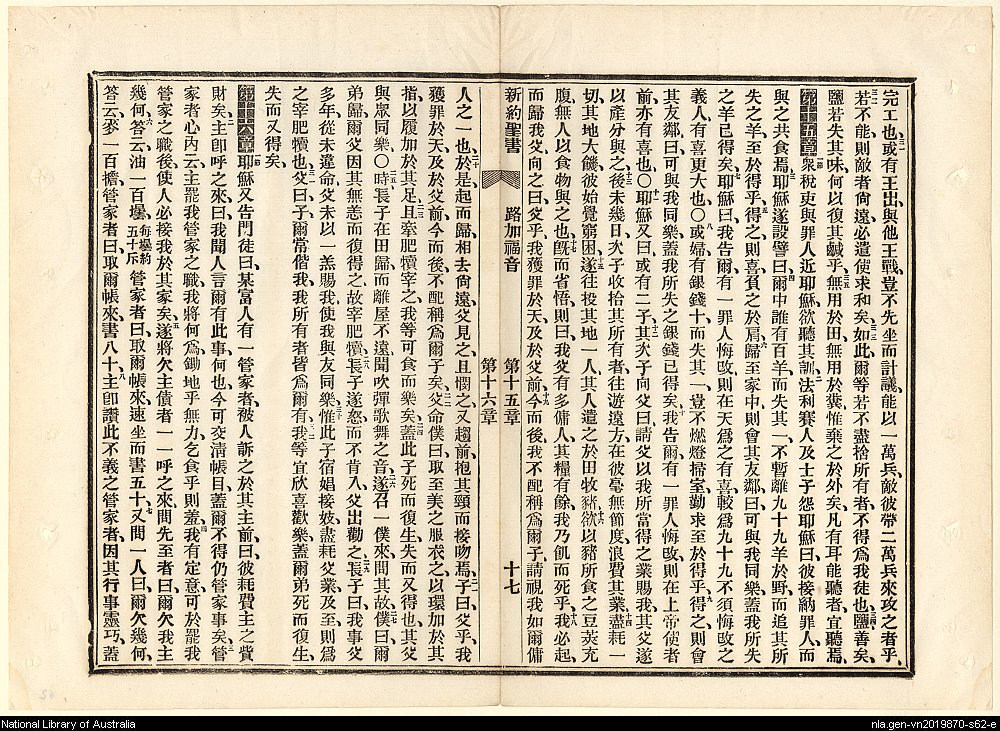 完工也或有王出與他王戰豈不先坐而計議能以一萬兵敵彼帶二萬兵來攻之者乎
若不能則敵者尚遠必遣使求和矣如此爾等若不盡捨所有者不得爲我徒也鹽善矣
鹽若失其味何以復其鹹乎無用於田無用於糞惟棄之於外矣凡有耳能聽者宜聽焉
第十五章衆稅吏與罪人近耶穌欲聽其訓法利賽人及士子怨耶穌曰彼接納罪人而
與之共食焉耶穌遂設譬曰爾中誰有百羊而失其一不暫離九十九羊於野而追其所
失之羊至於得乎得之則喜負之於肩歸至家中則會其友鄰曰可與我同樂蓋我所失
之羊已得矣耶穌曰我告爾有一罪人悔改則在天爲之有喜較爲九十九不須悔改之
義人有喜更大也〇或婦有銀錢十而失其一豈不燃燈掃室勤求至於得乎得之則會
其友鄰曰可與我同樂蓋我所失之銀錢已得矣我告爾有一罪人悔改則在上帝使者
前亦有喜也〇耶穌又曰或有二子其次子向父曰請父以我所當得之業賜我其父遂
以產分與之後未幾日次子收拾其所有者往遊遠方在彼毫無節度浪費其業盡耗一
切其地大饑彼始覺窮困遂往投其地一人其人遣之於田牧豬欲以豬所食之豆莢充
腹無人以食物與之也旣而省悟則曰我父有多傭人其糧有餘我乃飢而死乎我必起
而歸我父向之曰父乎我獲罪於天及於父前今而後我不配稱爲爾子請視我如爾傭
新約聖書 路加福音 第十五章 第十六章 十七
人之一也於是起而歸相去尚遠父見之且憫之又趨前抱其頸而接吻焉子曰父乎我
獲罪於天及於父前今而後不配稱爲爾子矣父命僕曰取至美之服衣之以環加於其
指以履加於其足且牽肥犢宰之我等可食而樂矣蓋此子死而復生失而又得也其父
與眾同樂〇時長子在田歸而離屋不遠聞吹彈歌舞之音遂召一僕來問其故僕曰爾
弟歸爾父因其無恙而復得之故宰肥犢長子遂怒而不肯入父出勸之長子曰我事父
多年從未違命父未以一羔賜我使我與友同樂惟此子宿娼接妓盡耗父業及至則爲
之宰肥犢也父曰子爾常偕我我所有者皆爲爾有我等宜欣喜歡樂蓋爾弟死而復生
失而又得矣
第十六章耶穌又告門徒曰某富人有一管家者被人訴之於其主前曰彼耗費主之貲
財矣主卽呼之來曰我聞人言爾有此事何也今可交淸帳目蓋爾不得仍管家事矣管
家者心內云主罷我管家之職我將何爲鋤地乎無力乞食乎則羞我有定意可於罷我
管家之職後使人必接我於其家矣遂將欠主債者一一呼之來問先至者曰爾欠我主
幾何答云油一百罍每罍約五十斤管家者曰取爾帳來速坐而書五十又問一人曰爾欠幾何
答云麥一百擔管家者曰取爾帳來書八十主卽讚此不義之管家者因其行事靈巧蓋
National Library of Australia
nla.gen-vn2019870-s62-e